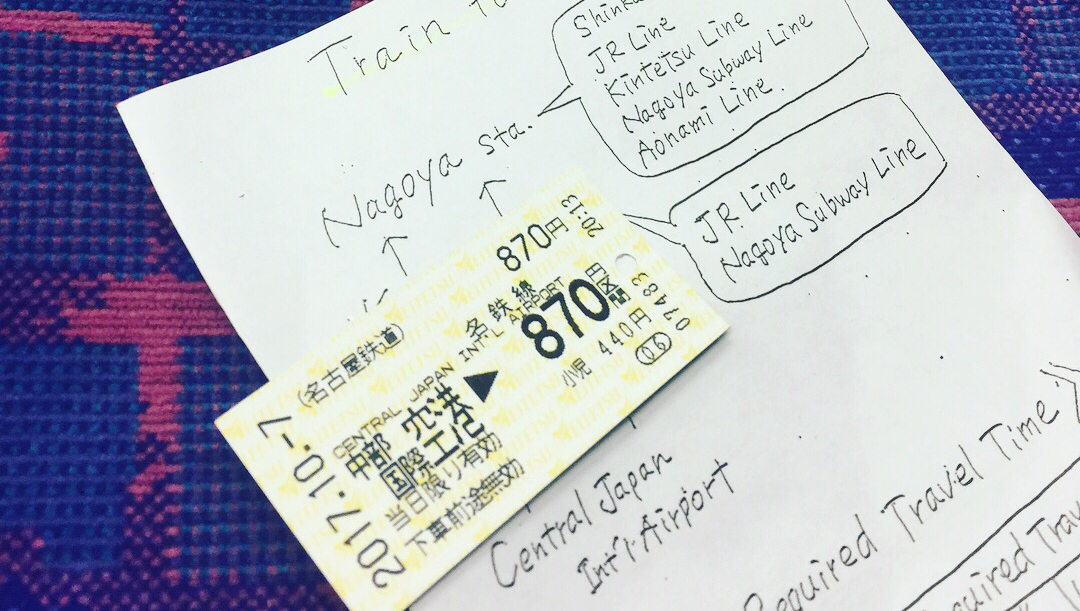 Train
Nagoya Sta.
JR Line
Kintetsu Line
Nagoya Subway Line
Aonami Line.
JR Line
Nagoya Subway Line
2017.10.-7
(名古屋鉄道)
名鉄線
870円
20:13
CENTRAL JAPAN INT'L AIRPORT
中部国際空港
▶
870円区間
小児 440円
07483
当日限り有効
下車前途無効
Central Japan
Int'l Airport
Required Travel Time